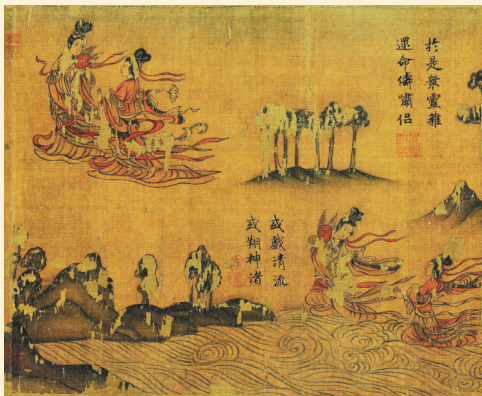 於是眾靈雜
遝命儔嘯侶
或戲清流
或翔神渚